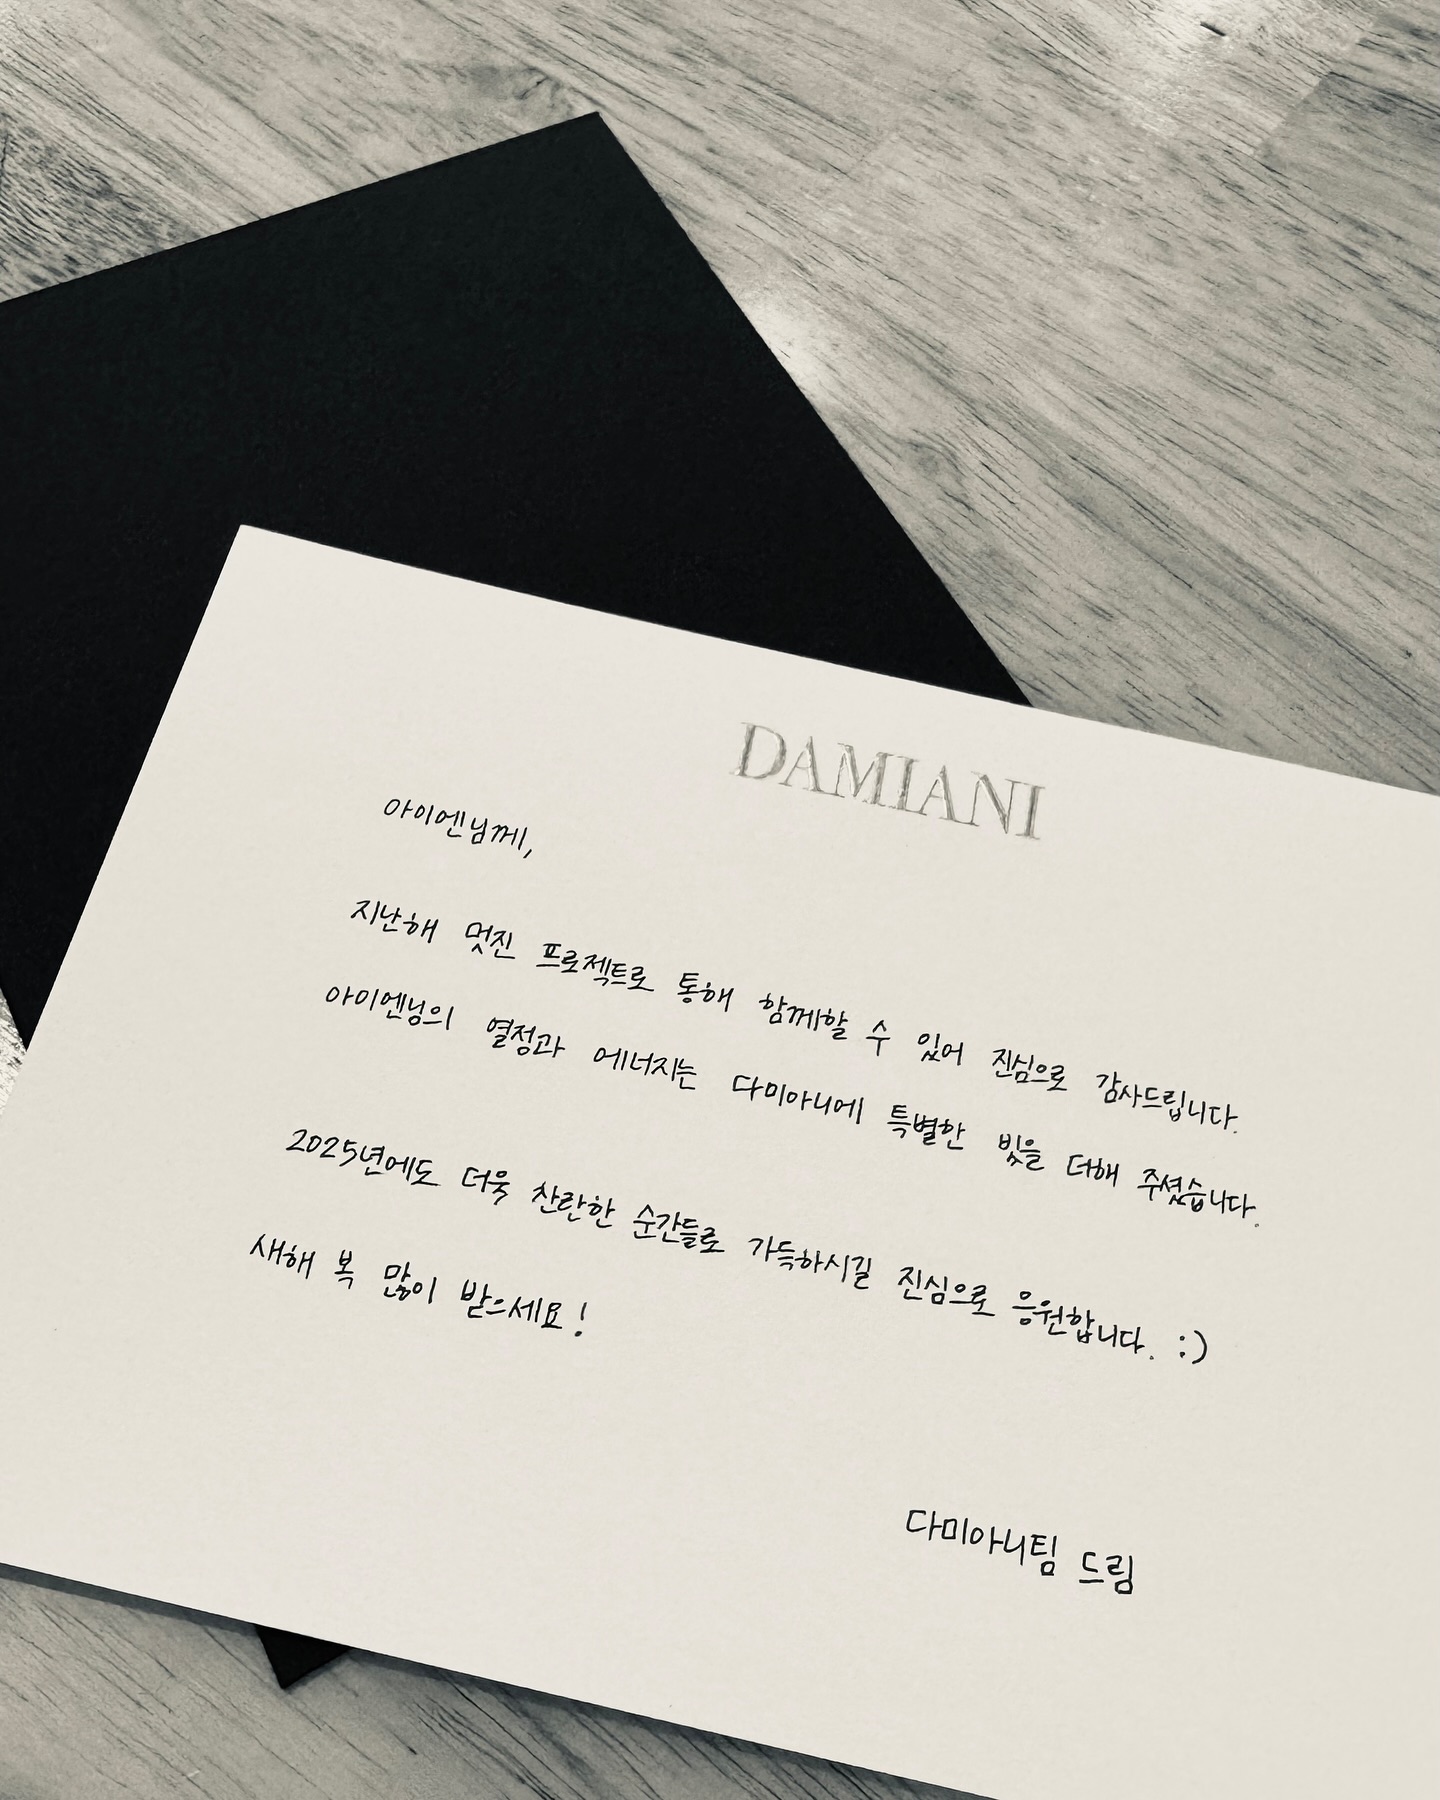 DAMIANI
아이엔님께,
지난해 멋진 프로젝트로 통해 함께할 수 있어 진심으로 감사드립니다.
아이엔님의 열정과 에너지는 다미아니에 특별한 빛을 더해 주셨습니다.
2025년에도 더욱 찬란한 순간들로 가득하시길 진심으로 응원합니다. :)
새해 복 많이 받으세요!
다미아니팀 드림